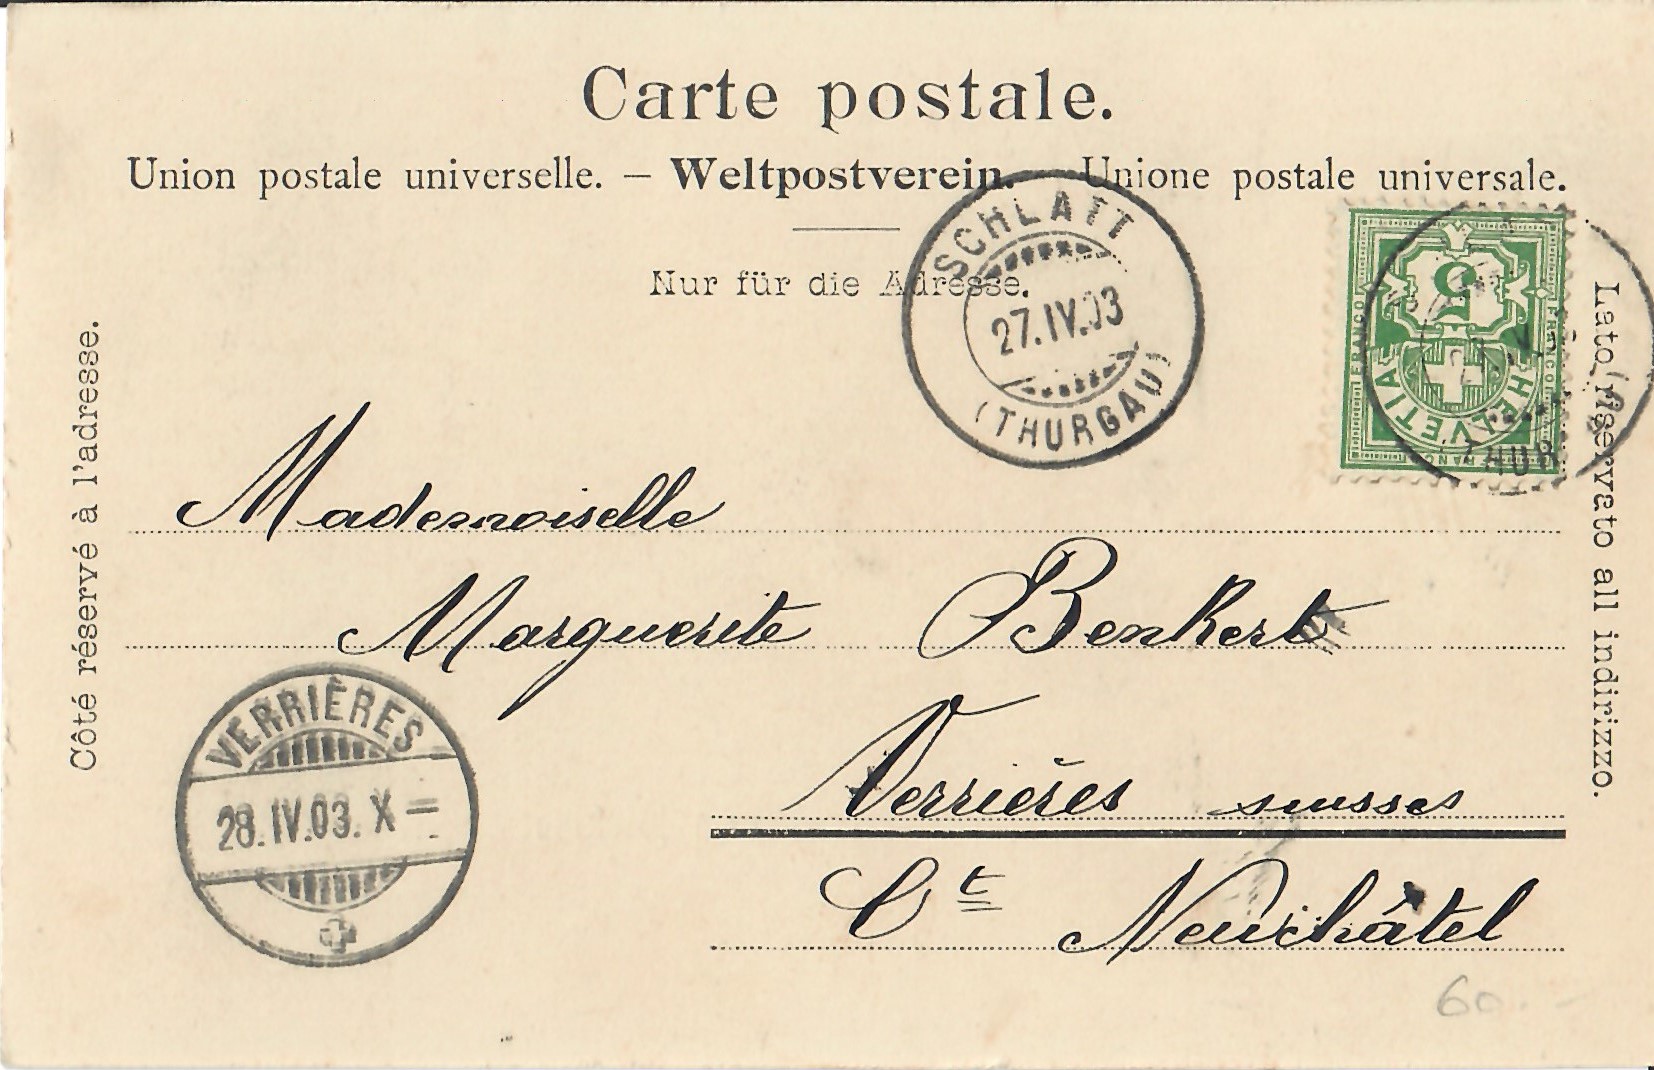 Carte postale.
Union postale universelle. — Weltpostverein. — Unione postale universale.
Nur für die Adresse.
SCHLATT
27.IV.03
(THURGAU)
5
FRANCO
FRANCO
HELVETIA
FRANCO
THUR
Côté réservé à l'adresse.
Lato riservato all indirizzo.
Mademoiselle
Marguerite Benkert
Verrières suisses
Ct Neuchâtel
VERRIÈRES
28.IV.03.X=
60.-